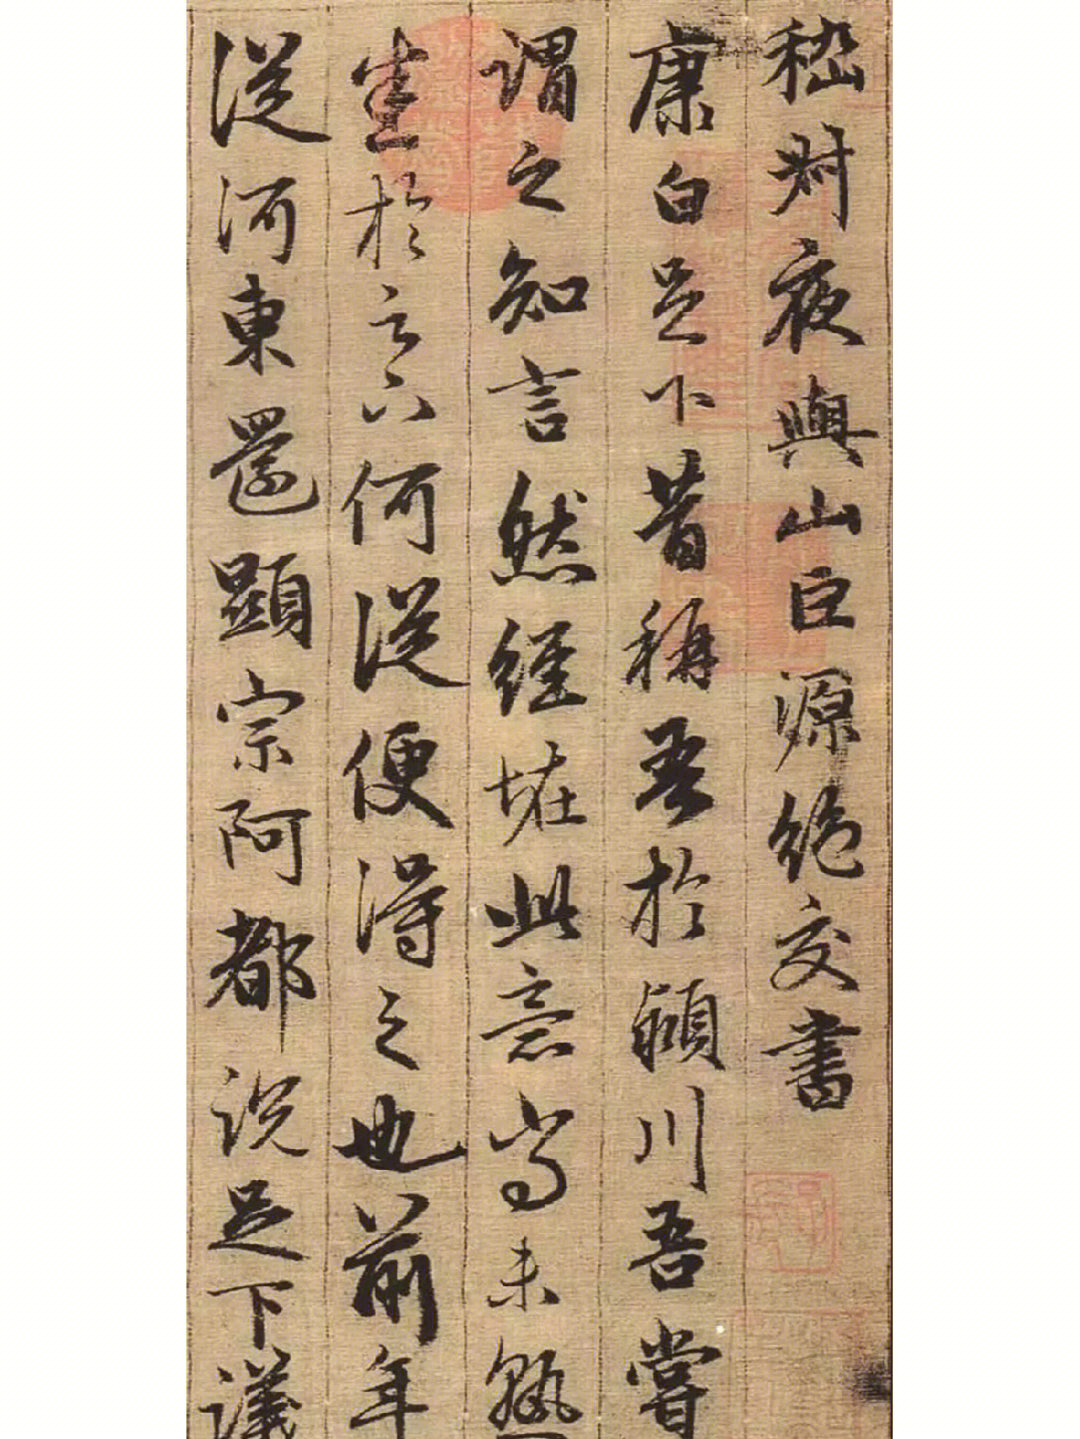 嵇叔夜與山巨源絕交書
康白足下昔稱吾於潁川吾嘗
謂之知言然經怪此意尚未熟
悉於足下何從便得之也前年
從河東還顯宗阿都說足下議